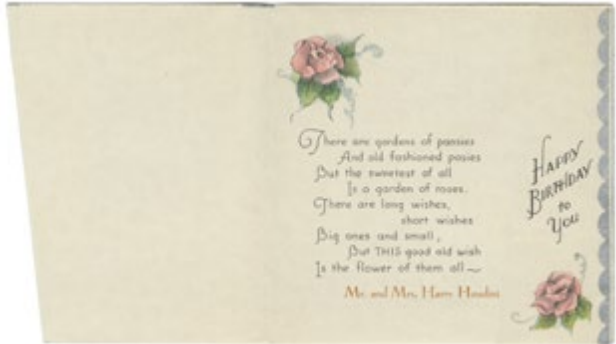 There are gardens of pansies
And old fashioned posies
But the sweetest of all
Is a garden of roses.
There are long wishes,
short wishes
Big ones and small,
But THIS good old wish
Is the flower of them all~
Mr. and Mrs. Harry Houdini
HAPPY
BIRTHDAY
to
You